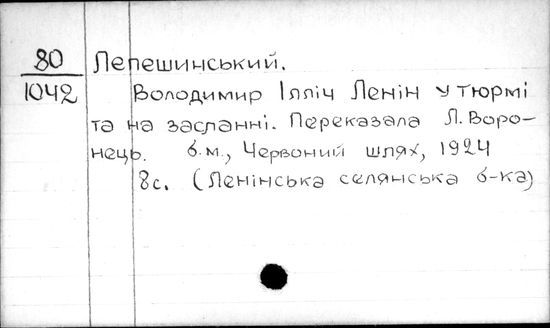 80
1042
Лепешинський.
Володимир Ілліч Ленін у тюрмі
та на засланні. Переказала Л. Воро-
нець. б.м., Червоний шлях, 1924
8с. (Ленінська селянська б-ка)